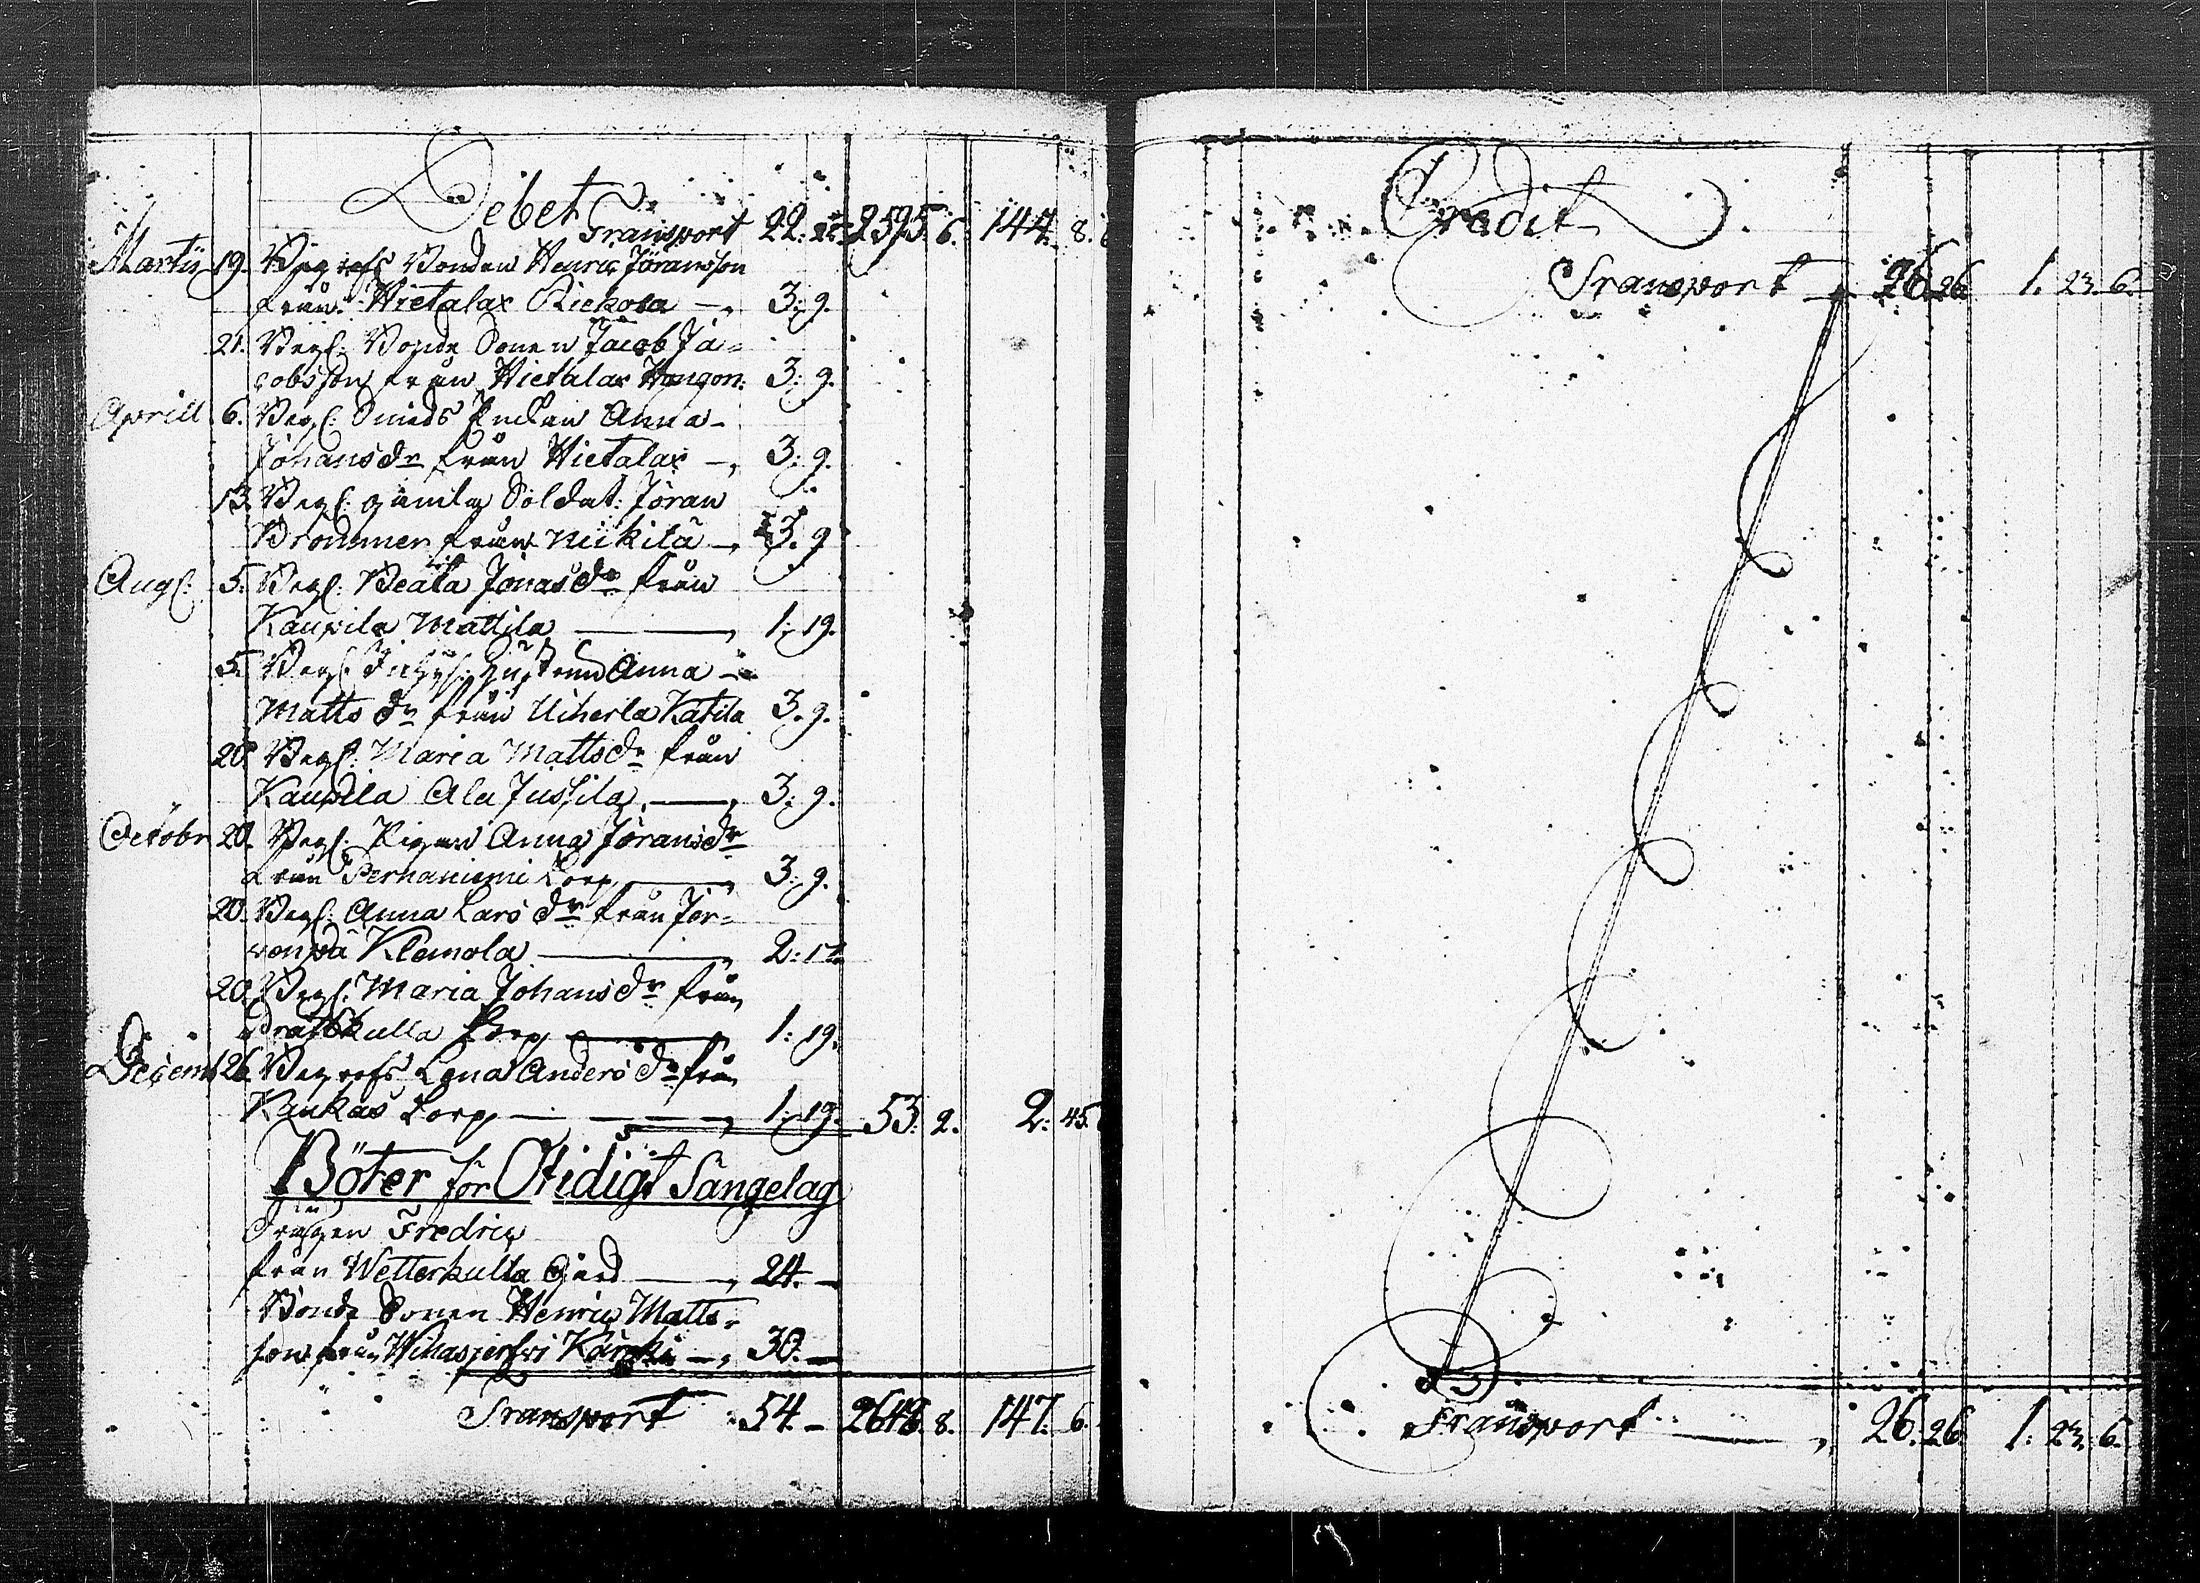 Debet
Transport 22: 22. 2595. 6. 144. 8.
Martii 19. Begrofs Bonden Henric Jöransson
från Hietalax Rickola — 3: 9.
21. Begf: Bonde Sonen Jacob Ja=
cobsson från Hietalax Hangon: 3: 9.
Aprill 6. Begf: Smeds Enkan Anna
Johansdr från Hietalax — 3: 9.
13. Begf: gamla Soldat: Jöran
Brommer från Mikilä — 3. 9
Augf: 5. Begf: Beata Jonasdr från
Kaupila Mattila — 1: 19.
5. Begf: Inhys: Hustrun Anna
Matts dr från Uiherla Katila 3. 9.
20. Begf: Maria Mattsdr från
Kaupila Ala Jussila — 3: 9.
Octobr 20. Begf: Pigan Anna Joransdr
från Pernaniemi Torp — 3: 9.
20. Begf: Anna Lars dr från Jer=
wenpä Klemola — 2: 14.
20. Begf: Maria Johans dr från
kulla Torp — 1: 19.
Decemb 26. Begrofs Lena Anders dr från
Kaukas Torp — 1: 19. 53. 2. 2: 45.
Böter för Otidigt Sängelag
Drängen Fredric
från Wetterkulla Gård — 24. —
Bonde Sonen Henric Matts=
son från Wihasjerfwi Kärcki — 30. —
Transport 54 — 2648. 8. 147. 6
Credit
Transport 26. 26 1. 23. 6.
Transport — 26. 26 1. 23. 6.